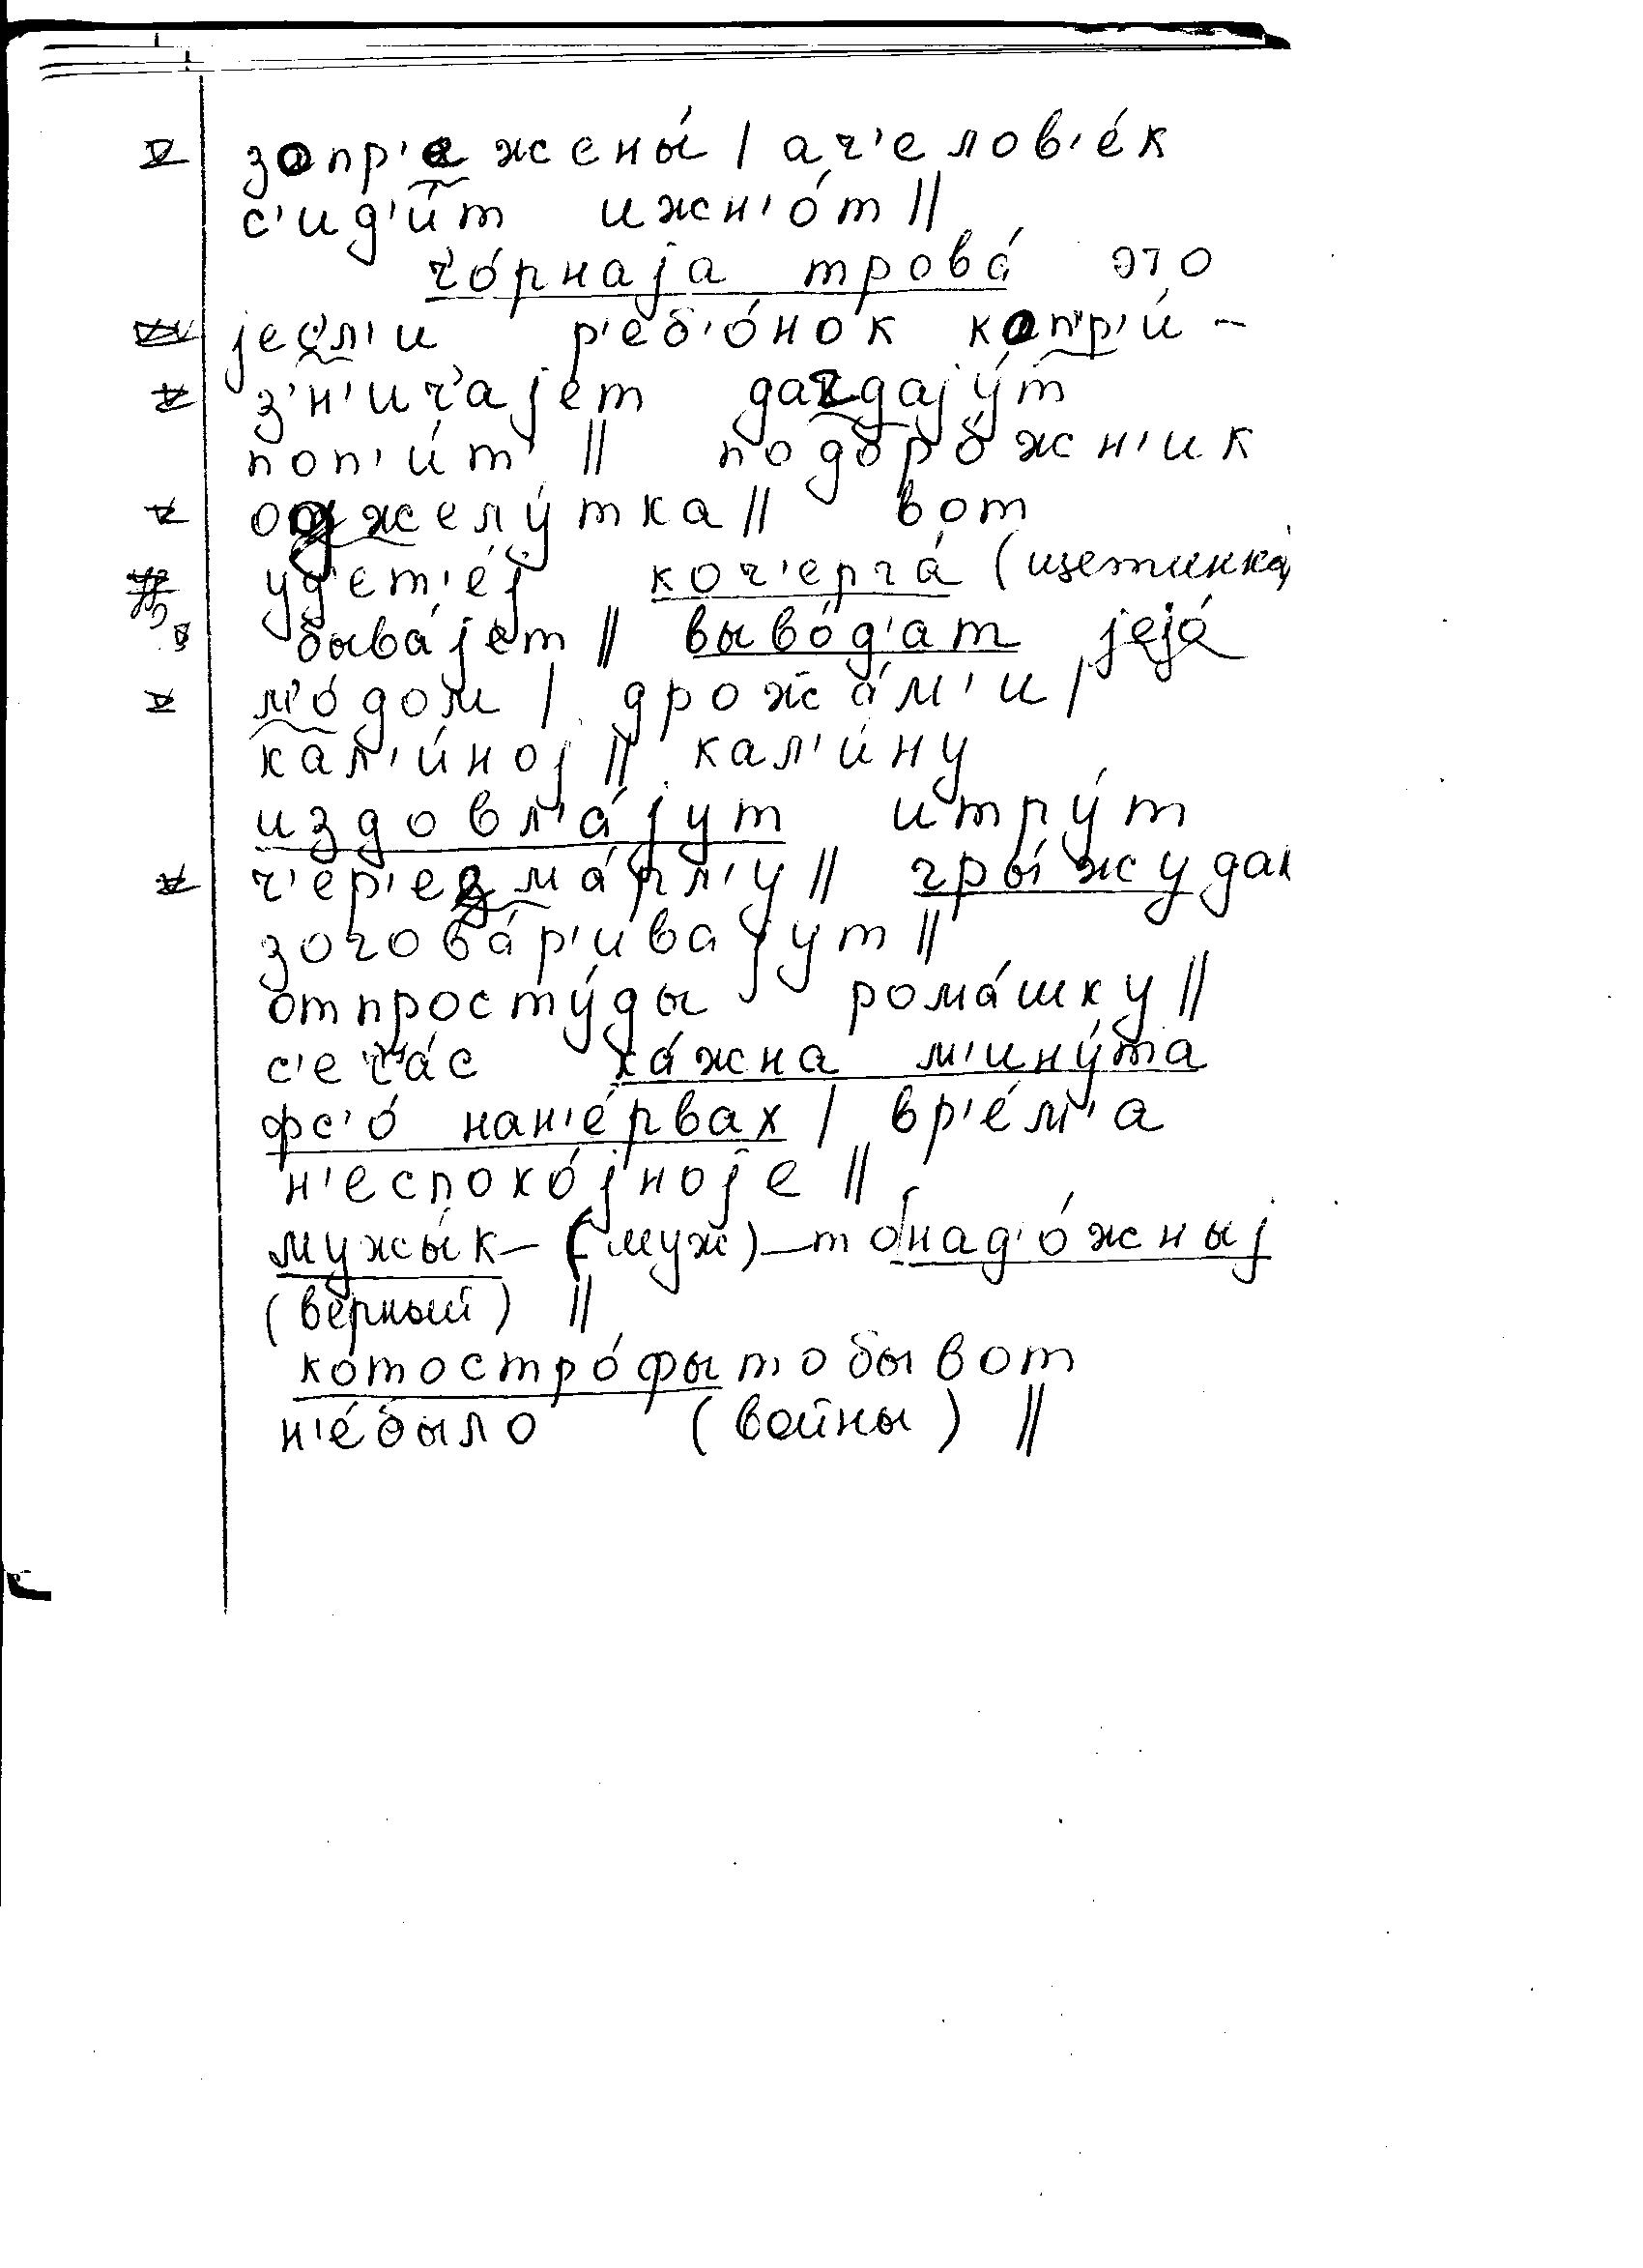 запр'ежены́ | ач'елов'е́к
с'ид'и́т ижн'о́т ||
ч'о́рнаjа трова́ это
jес'л'и р'еб'о́нок капр'и́-
з'н'ич'аjет дагдаjу́т
поп'и́т' || подоро́жн'ик
оджелу́тка || вот
уд'ет'е́j коч'ерга́ (щетинка)
быва́jет || выво́д'ат jеjо́
м'о́дом | дрожжа́м'и |
кал'и́ноj || кал'и́ну
издовл'а́jут итру́т
ч'ер'езма́рл'у || гры́жу дак
зогова́р'иваjут ||
отпросту́ды рома́шку ||
с'еч'а́с ка́жна м'ину́та
фс'о́ нан'е́рвах | вр'е́м'а
н'еспоко́jноjе ||
мужы́к – (муж) – то надо́жныj
(верный) ||
котостро́фы тобы вот
н'е́было (войны) ||